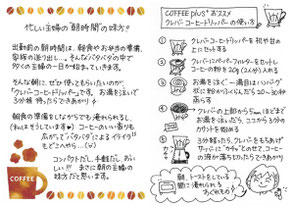 忙しい主婦の"朝時間"の味方!
出勤前の朝時間は、朝食やお弁当の準備、
家族の送り出し…。そんなバタバタの中で
多くの主婦の一日が始まっていきます。
そんな朝に、ぜひ使ってもらいたいのが、
「クレバーコーヒードリッパー」です。お湯を注いで
3分程待ったらできあがり♪
朝食の準備をしながらでも淹れられるし、
コーヒーのいい香りも
広がって"バタバタ"による"イライラ"も
どこへやら…(^^)
コンパクトだし、手軽だし、おいしい!!
まさに朝の主婦の
味方だと思います。
COFFEE
COFFEE plus+おススメ
クレバーコーヒードリッパーの使い方
① クレバーコーヒードリッパーを
上にセットする
② クレバーにペーパーフィルターをセットし
コーヒーの粉を20g(2人分)入れる
③ お湯を注ぐ
20〜30秒
蒸らす
④ クレバーの上部から
お湯を注いだら、ココから3分の
カウントを始める
⑤ 3分経ったら、クレバーをもちあげ
サーバーに"カチッ"とのせると、コーヒー
の液が落ち切ったらできあがり
朝、トーストをしている
間に淹れられる